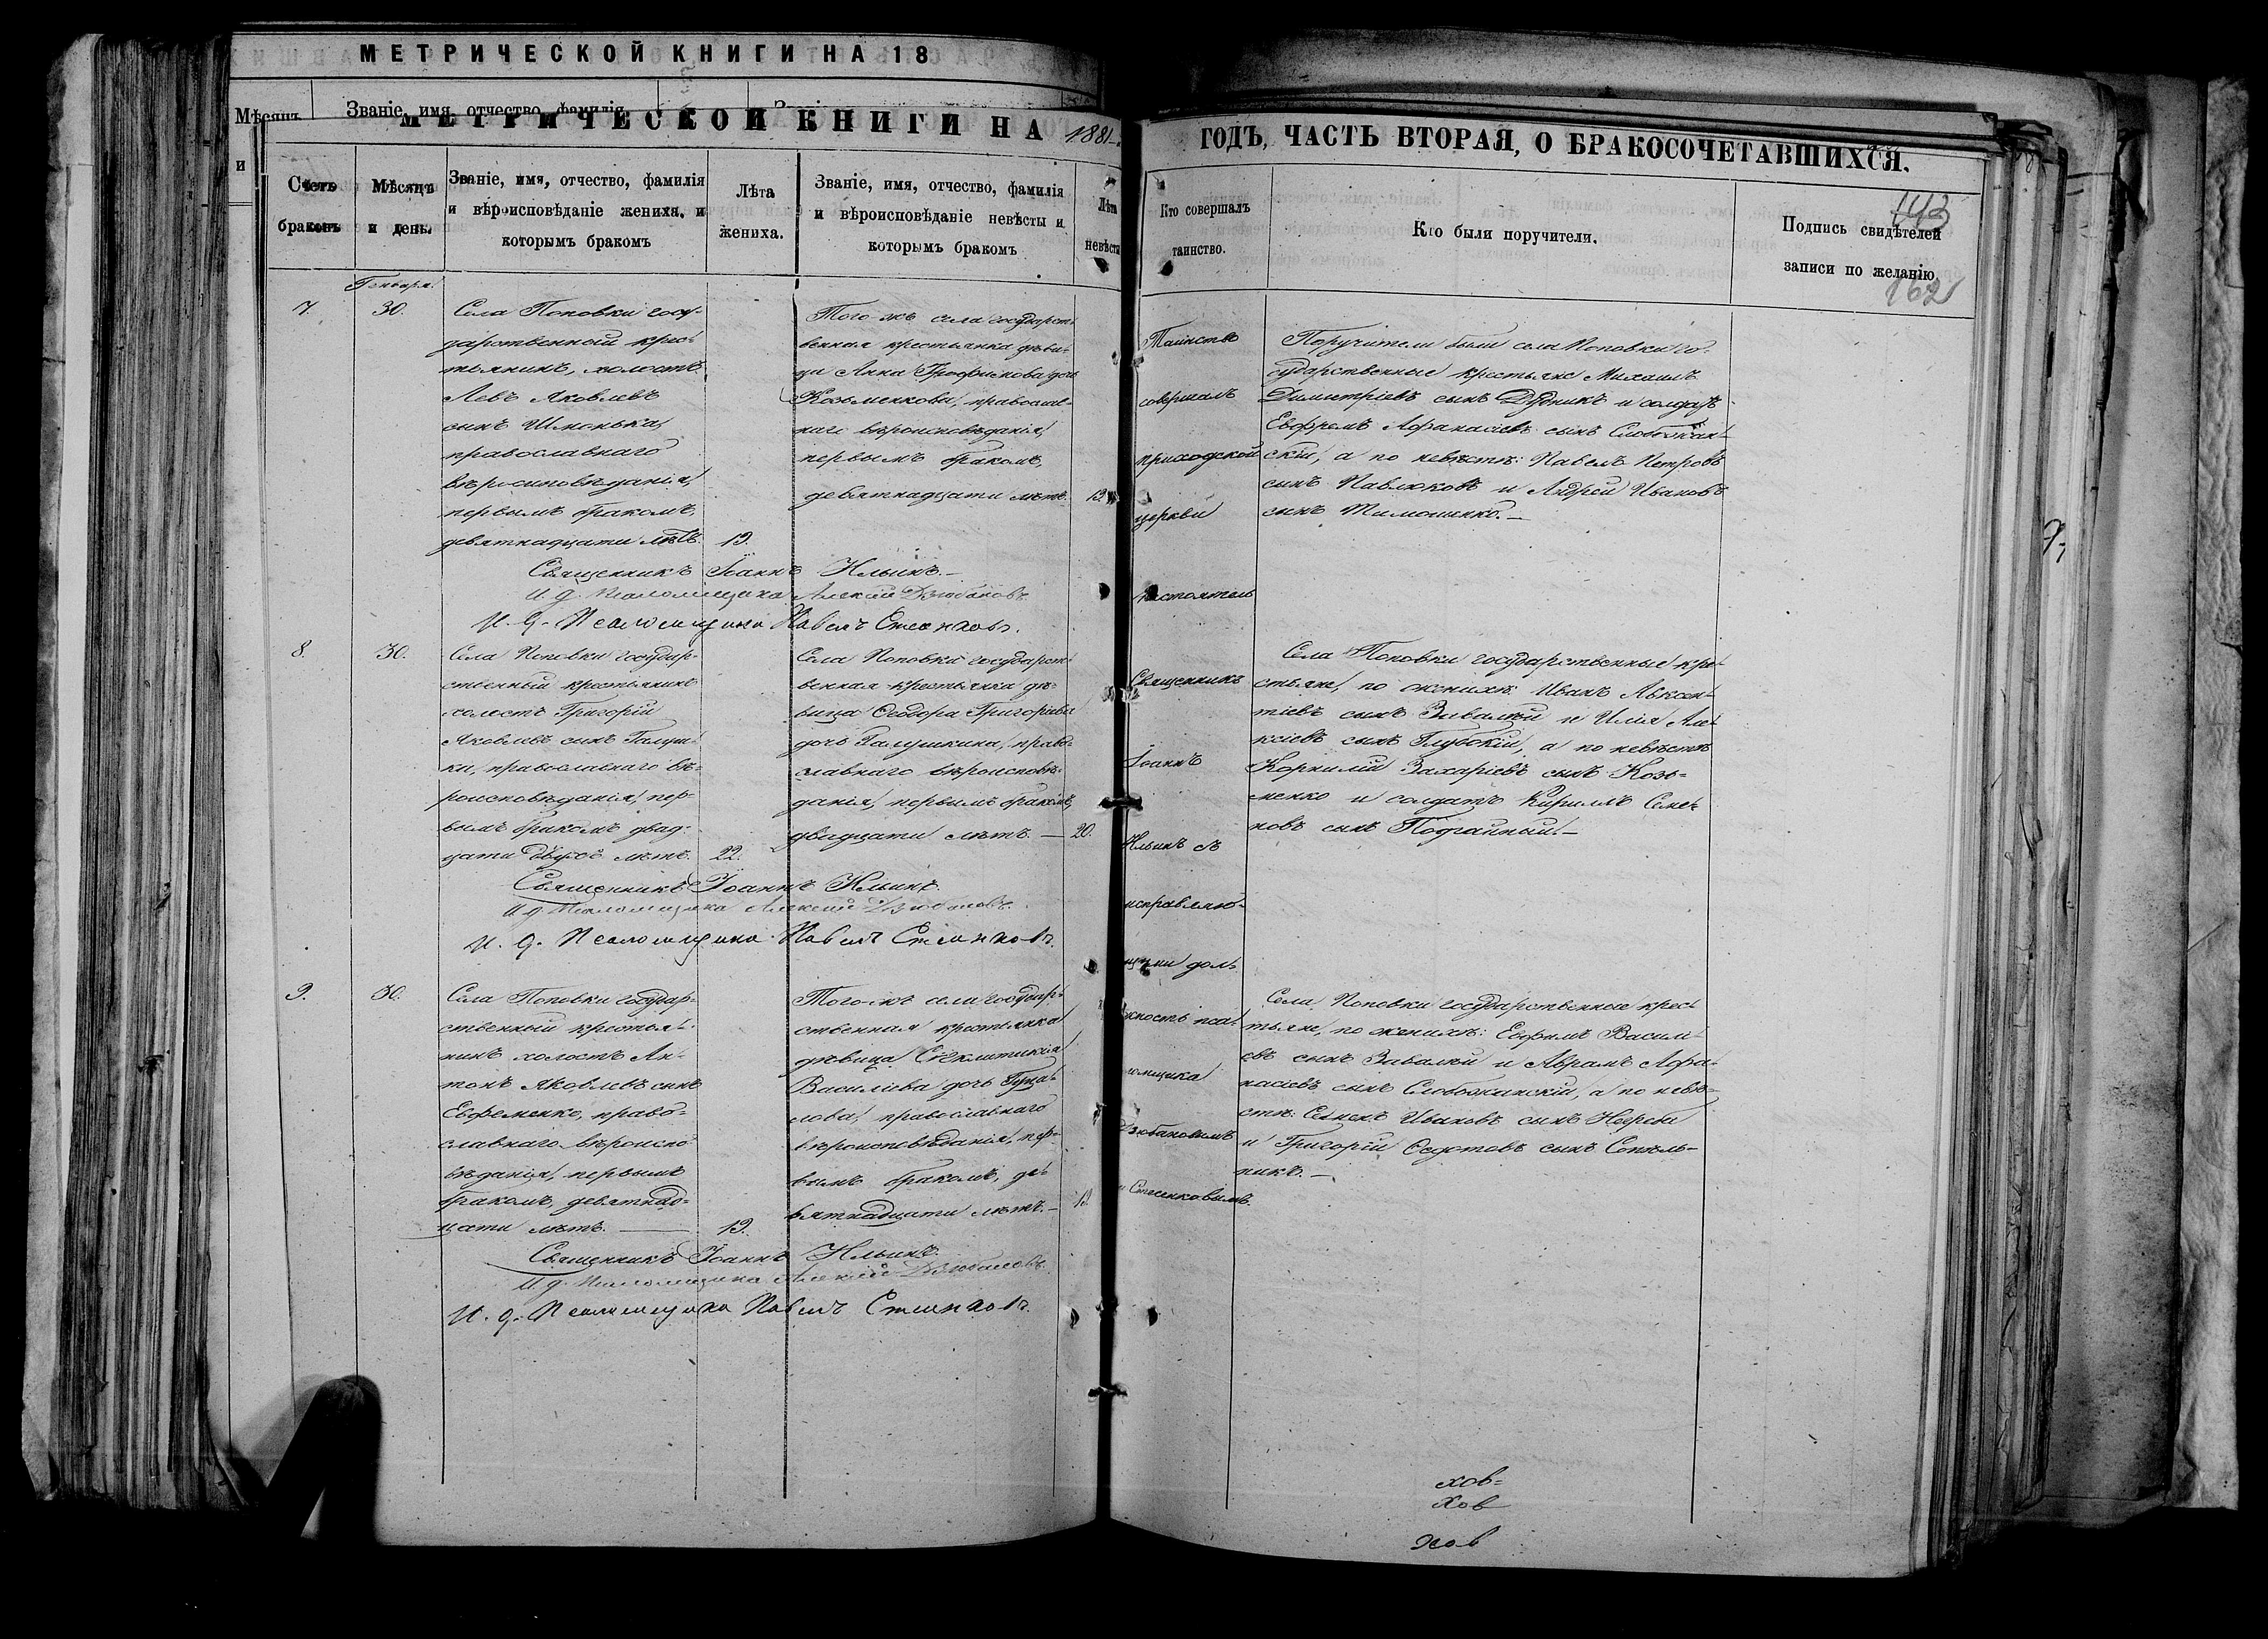 МЕТРИЧЕСКОЙ КНИГИ НА 18
Мѣсяцъ
Званіе, имя, отчество, фамилія
и
МЕТРИЧЕСКОЙ КНИГИ НА 1881
ГОДЪ, ЧАСТЬ ВТОРАЯ, О БРАКОСОЧЕТАВШИХСЯ.
Счетъ
браковъ
Мѣсяцъ
и день.
Званіе, имя, отчество, фамилія
и вѣроисповѣданіе жениха, и
которымъ бракомъ
Лѣта
жениха.
Званіе, имя, отчество, фамилія
и вѣроисповѣданіе невѣсты и
которымъ бракомъ
Лѣта
невѣсты
Кто совершалъ
таинство.
Кто были поручители.
Подпись свидѣтелей
записи по желанію.
143
162
Генваря
7.
30.
Села Поповки госу-
дарственный крес-
тьянинъ, холостъ
Левъ Яковлевъ
сынъ Шмонька,
православнаго
вѣроисповѣданія,
первымъ бракомъ,
девятнадцати лѣтъ.
19.
Того-жъ села государст-
венная крестьянка дѣви-
ца Анна Трофимова дочь
Козьменкова, православ-
наго вѣроисповѣданія,
первымъ бракомъ,
девятнадцати лѣтъ.
19.
Поручители были села Поповки го-
сударственные крестьяне Михаилъ
Димитріевъ сынъ Дудникъ и солдатъ
Ефремъ Афанасіевъ сынъ Слобожан-
скій, а по невѣстѣ: Павелъ Петровъ
сынъ Павлюковъ и Андрей Ивановъ
сынъ Тимошенко.—
Священникъ Іоаннъ Ильинъ.—
И. д. Псаломщика Алексій Дзюбановъ.
И. д. Псаломщика Павелъ Стеенковъ.
8.
30.
Села Поповки государ-
ственный крестьянинъ
холостъ Григорій
Яковлевъ сынъ Галуш-
ки, православнаго вѣ-
роисповѣданія, пер-
вымъ бракомъ двад-
цати двухъ лѣтъ.
22.
Села Поповки государст-
венная крестьянка дѣ-
вица Ѳеодора Григоріева
дочь Галушкина, право-
славнаго вѣроисповѣ-
данія, первымъ бракомъ,
двадцати лѣтъ.—
20.
Села Поповки государственные кре-
стьяне, по женихѣ: Иванъ Авксен-
тіевъ сынъ Завалій и Илія Але-
ксіевъ сынъ Глубокій, а по невѣстѣ
Корнилій Захаріевъ сынъ Козь-
менко и солдатъ Кириллъ Семе-
новъ сынъ Подгайный.—
Священникъ Іоаннъ Ильинъ.
И. д. Псаломщика Алексій Дзюбановъ.
И. д. Псаломщика Павелъ Стеенковъ.
9.
30.
Села Поповки государ-
ственный крестья-
нинъ холостъ Ан-
тонъ Яковлевъ сынъ
Евфеменко, право-
славнаго вѣроиспо-
вѣданія, первымъ
бракомъ, девятнад-
цати лѣтъ.—
19.
Того-жъ села государ-
ственная крестьянка
дѣвица
Василіева дочь
православнаго
вѣроисповѣданія, пер-
вымъ бракомъ, де-
вятнадцати лѣтъ.—
19.
Села Поповки государственные крес-
тьяне, по женихѣ: Евфимъ Василі-
евъ сынъ Завалій и Аврамъ Афа-
насіевъ сынъ Слобожанскій, а по невѣ-
стѣ: Семенъ Ивановъ сынъ
и Григорій Ѳедотовъ сынъ Сопѣль-
никъ.—
Священникъ Іоаннъ Ильинъ.
И. д. Псаломщика Алексій Дзюбановъ.
И. д. Псаломщика Павелъ Стеенковъ.
Таинство
совершалъ
приходской
церкви
настоятель
Священникъ
Іоаннъ
Ильинъ съ
исправляю-
щими дол-
жность пса-
ломщика
Дзюбановымъ
и Стеенковымъ.
хов-
хов
хов